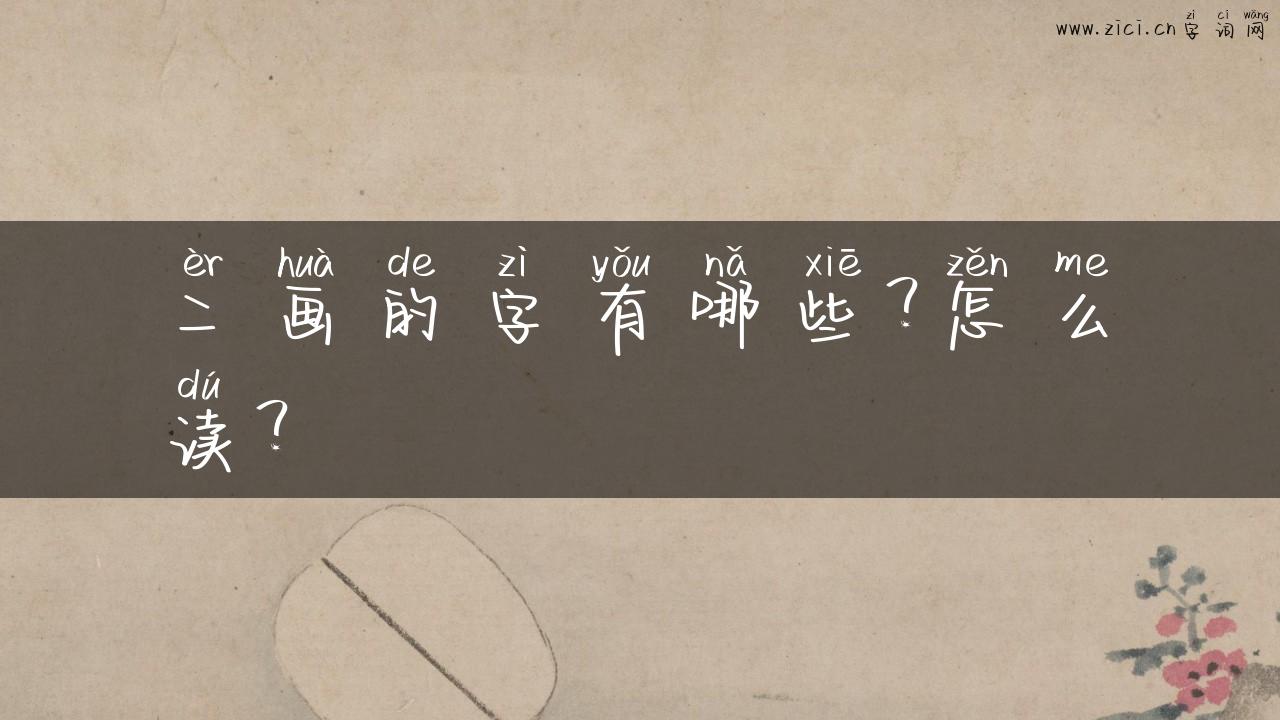 zì cí wǎng
www.zici.cn字词网
èr huà de zì yǒu nǎ xiē zěn me
二画的字有哪些?怎么
dú
读?